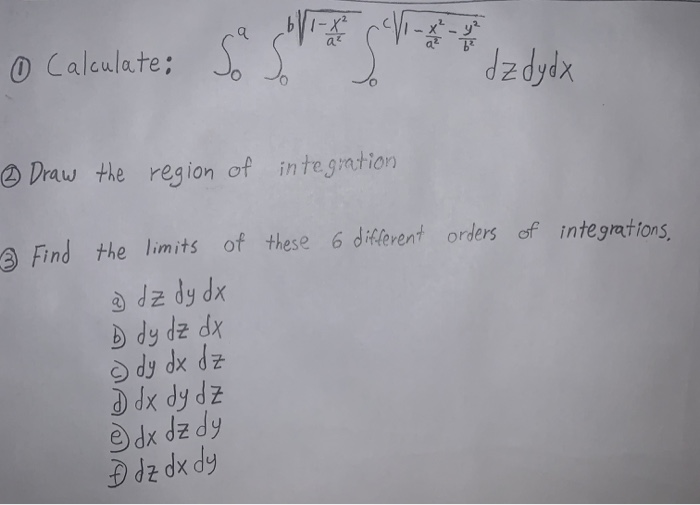 ① Calculate: ∫₀ᵃ ∫₀^{b√(1-x²/a²)} ∫₀^{c√(1-x²/a²-y²/b²)} dz dy dx
② Draw the region of integration
③ Find the limits of these 6 different orders of integrations.
ⓐ dz dy dx
ⓑ dy dz dx
ⓒ dy dx dz
ⓓ dx dy dz
ⓔ dx dz dy
ⓕ dz dx dy